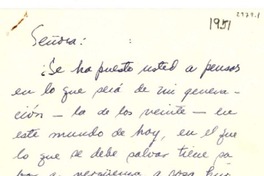 2979.1
1951
Señora:
¡Se ha puesto usted a pensar
en lo que será de mi genera-
ción — la de los veinte — en
este mundo de hoy, en el que
lo que se debe salvar tiene sa-
a vergüenza a cosa